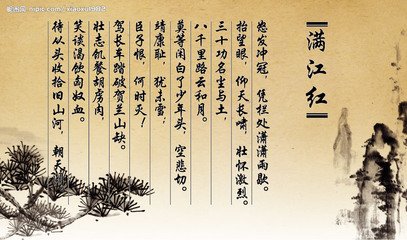 昵图网 nipic.com
满江红
怒发冲冠，凭栏处潇潇雨歇。
抬望眼，仰天长啸，壮怀激烈。
三十功名尘与土，
八千里路云和月。
莫等闲白了少年头，空悲切。
靖康耻，犹未雪；
臣子恨，何时灭！
驾长车踏破贺兰山缺。
壮志饥餐胡虏肉，
笑谈渴饮匈奴血。
待从头收拾旧山河，朝天